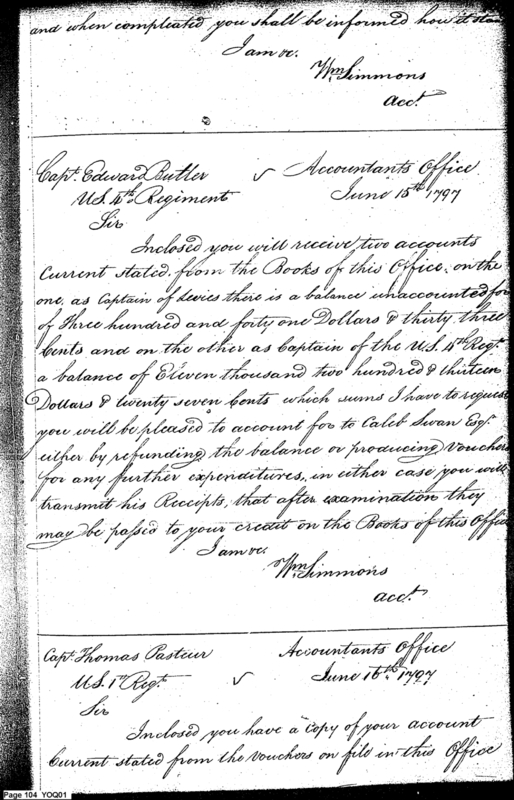 and when compleated you shall be informed how it stan
I am &c.
Wm. Simmons
Acct.
Capt. Edward Butler
U.S. 4th Regiment
Accountants Office
June 15th 1797
Sir
Inclosed you will receive two accounts
Current stated from the Books of this Office, on the
one, as Captain of Levies there is a balance unaccounted for
of Three hundred and forty one Dollars & thirty three
Cents and on the other as Captain of the U.S. 4th Regt.
a balance of Eleven thousand two hundred & thirteen
Dollars & twenty seven Cents which sums I have to request
you will be pleased to account for to Caleb Swan Esqr.
either by refunding the balance or producing Vouchers
for any further expenditures, in either case you will
transmit his Receipts, that after examination they
may be passed to your credit on the Books of this Office
I am &c.
Wm. Simmons
Acct.
Capt. Thomas Pasteur
U.S. 1st Regt.
Accountants Office
June 16th. 1797
Sir
Inclosed you have a Copy of your account
Current stated from the Vouchers on file in this Office
Page 104 YOQ01